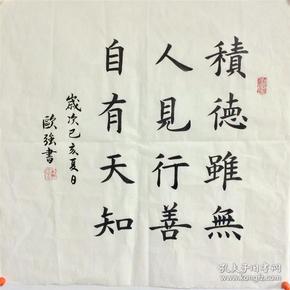 積德雖無
人見行善
自有天知
歲次己亥夏日
歐強書
孔夫子旧书网